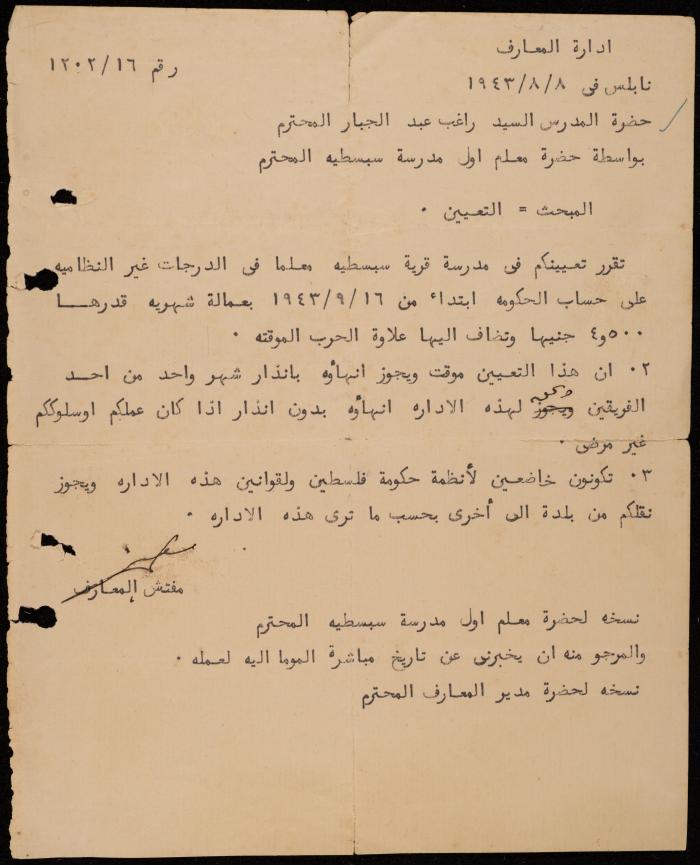 ادارة المعارف
رقم ١٢٠٢/١٦
نابلس فى ١٩٤٣/٨/٨
حضرة المدرس السيد راغب عبد الجبار المحترم
بواسطة حضرة معلم اول مدرسة سبسطيه المحترم
المبحث = التعيين ٠
تقرر تعيينكم فى مدرسة قرية سبسطيه معلما فى الدرجات غير النظاميه
على حساب الحكومه ابتداء من ١٩٤٣/٩/١٦ بعمالة شهريه قدرهــا
٥٠٠و٤ جنيها وتضاف اليها علاوة الحرب الموقته ٠
٠٢ ان هذا التعيين موقت ويجوز انهاؤه بانذار شهر واحد من احــد
الفريقين ويجوز لهذه الاداره انهاؤه بدون انذار اذا كان عملكم اوسلوككم
غير مرضى ٠
٠٣ تكونون خاضعين لأنظمة حكومة فلسطين ولقوانين هذه الاداره ويجوز
نقلكم من بلدة الى أخرى بحسب ما ترى هذه الاداره ٠
مفتش المعارف
نسخه لحضرة معلم اول مدرسة سبسطيه المحترم
والمرجو منه ان يخبرنى عن تاريخ مباشرة الموما اليه لعمله ٠
نسخه لحضرة مدير المعارف المحترم